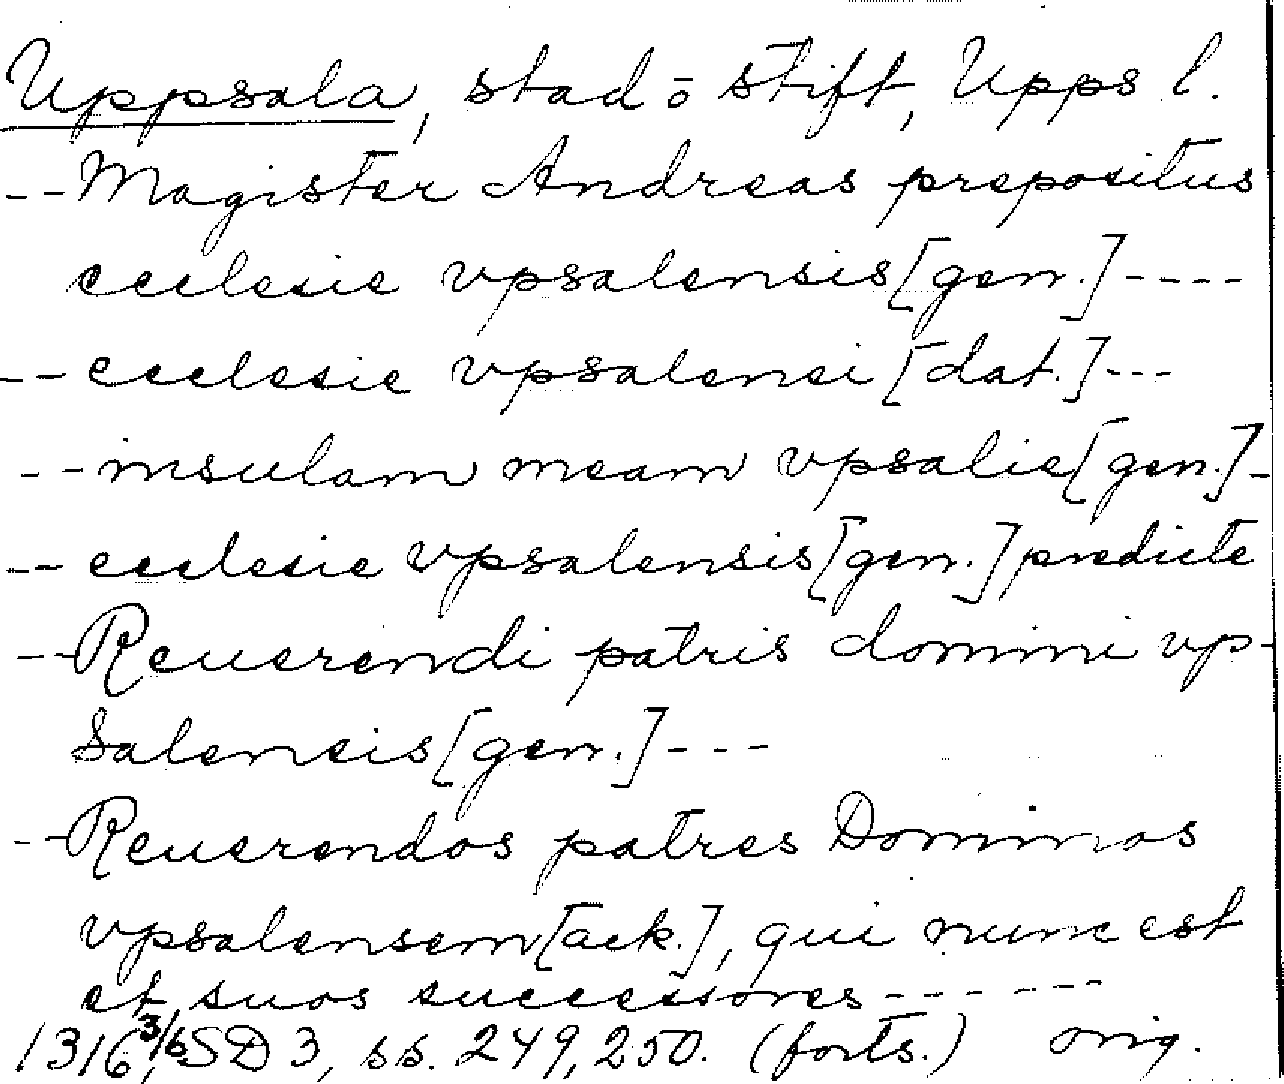 Uppsala, stad o stift, Upps l.
-- Magister Andreas prepositus
ecclesie vpsalensis [gen.] ----
-- ecclesie vpsalensi [dat.] ---
-- insulam meam vpsalie [gen.] -
-- ecclesie vpsalensis [gen.] predicte
-- Reuerendi patris domini vp-
salensis [gen.] ---
-- Reuerendos patres Dominos
vpsalensem [ack.], qui nunc est
et suos successores ------
1316 3/6, SD 3, ss. 249, 250. (forts.) orig.